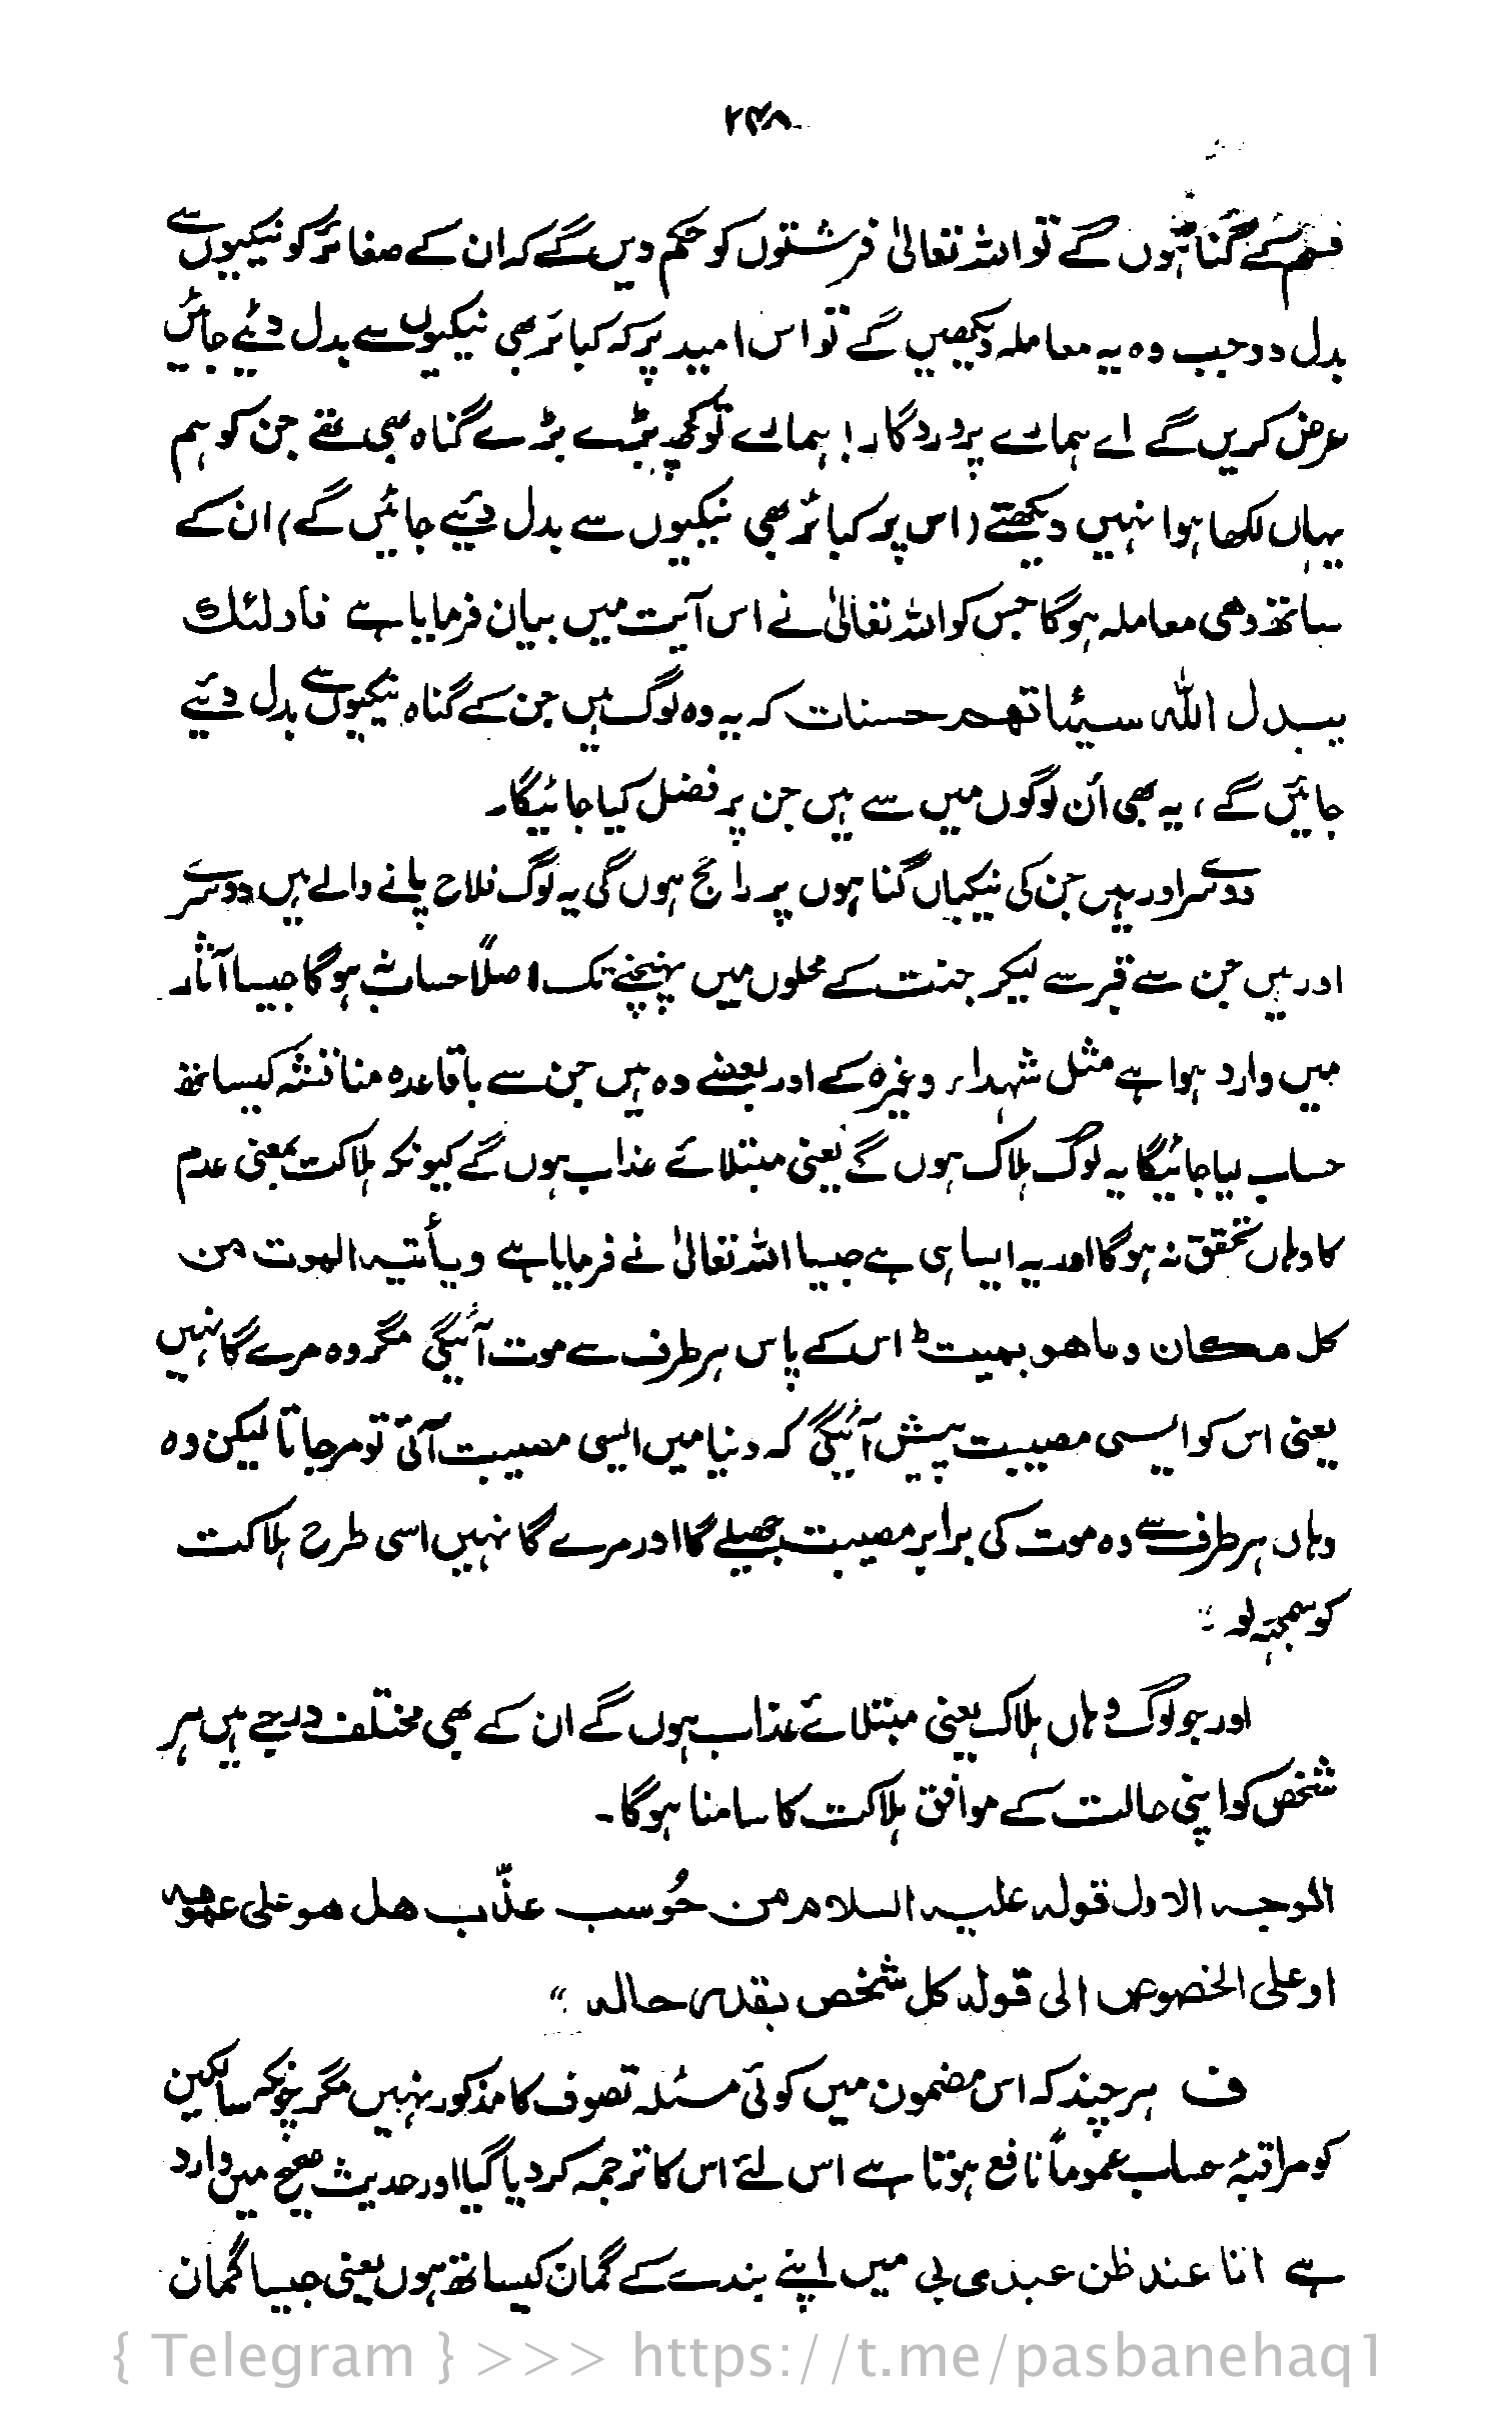 ۲۴۸
قسم کے گناہوں گے تو اللہ تعالیٰ فرشتوں کو حکم دیں گے کہ ان کے صغائر کو نیکیوں سے
بدل دو جب وہ یہ معاملہ دیکھیں گے تو اس امید پر کہ کبائر بھی نیکیوں سے بدل دیئے جائیں
عرض کریں گے اے ہمارے پروردگار! ہمارے تو کچھ بڑے بڑے گناہ بھی تھے جن کو ہم
یہاں لکھا ہوا نہیں دیکھتے (اس پر کبائر بھی نیکیوں سے بدل دیئے جائیں گے) ان کے
ساتھ وہی معاملہ ہوگا جس کو اللہ تعالیٰ نے اس آیت میں بیان فرمایا ہے فاولئك
یبدل اللہ سیئاتھم حسنات کہ یہ وہ لوگ ہیں جن کے گناہ نیکیوں سے بدل دیئے
جائیں گے، یہ بھی اُن لوگوں میں سے ہیں جن پر فضل کیا جائیگا۔
دوسرے اور ہیں جن کی نیکیاں گناہوں پر راجح ہوں گی یہ لوگ فلاح پانے والے ہیں دوسرے
اور ہیں جن سے قبر سے لیکر جنت کے محلوں میں پہنچنے تک اصلاً حساب نہ ہوگا جیسا آثار
میں وارد ہوا ہے مثل شہداء وغیرہ کے اور بعضے وہ ہیں جن سے باقاعدہ مناقشہ کیساتھ
حساب لیا جائیگا یہ لوگ ہلاک ہوں گے یعنی مبتلائے عذاب ہوں گے کیونکہ ہلاکت بمعنی عدم
کا وہاں تحقق نہ ہوگا اور یہ ایسا ہی ہے جیسا اللہ تعالیٰ نے فرمایا ہے ویأتیہ الموت من
کل مکان وما ھو بمیت ط اس کے پاس ہر طرف سے موت آئیگی مگر وہ مرے گا نہیں
یعنی اس کو ایسی مصیبت پیش آئیگی کہ دنیا میں ایسی مصیبت آتی تو مر جاتا لیکن وہ
وہاں ہر طرف سے وہ موت کی برابر مصیبت جھیلے گا اور مرے گا نہیں اسی طرح ہلاکت
کو سمجھ لو ؛
اور جو لوگ وہاں ہلاک یعنی مبتلائے عذاب ہوں گے ان کے بھی مختلف درجے ہیں ہر
شخص کو اپنی حالت کے موافق ہلاکت کا سامنا ہوگا۔
الوجہ الاول قولہ علیہ السلام من حُوسب عذّب ھل ھو علی عمومہ
او علی الخصوص الی قولہ کل شخص بقدر حالہ ؛"
ف ہر چند کہ اس مضمون میں کوئی مسئلہ تصوف کا مذکور نہیں مگر چونکہ سالکین
کو مراقبۂ حساب عموماً نافع ہوتا ہے اس لئے اس کا ترجمہ کر دیا گیا اور حدیث صحیح میں وارد
ہے انا عند ظن عبدی بی میں اپنے بندے کے گمان کیساتھ ہوں یعنی جیسا گمان
{ Telegram } >>> https://t.me/pasbanehaq1